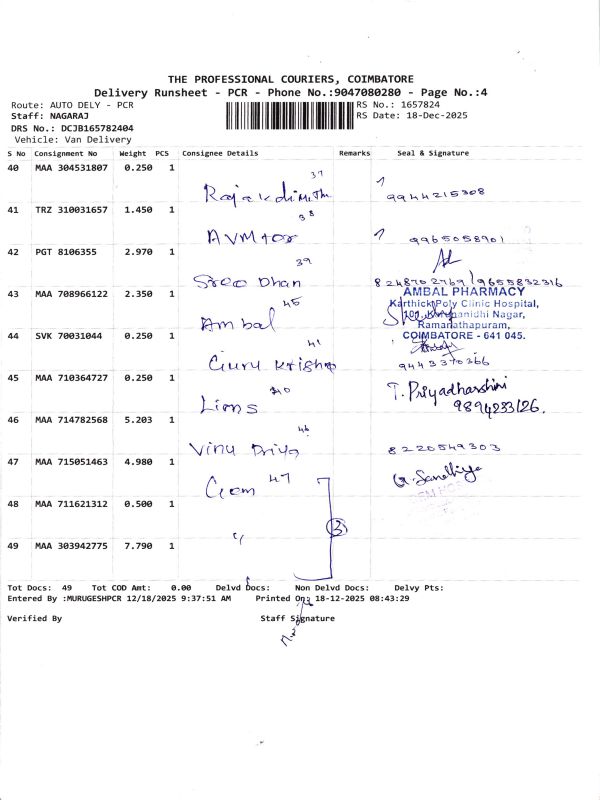 THE PROFESSIONAL COURIERS, COIMBATORE
Delivery Runsheet - PCR - Phone No.:9047080280 - Page No.:4
Route: AUTO DELY - PCR RS No.: 1657824
Staff: NAGARAJ RS Date: 18-Dec-2025
DRS No.: DCJB165782404
Vehicle: Van Delivery
S No Consignment No Weight PCS Consignee Details Remarks Seal & Signature
40 MAA 304531807 0.250 1
37
9944215308
41 TRZ 310031657 1.450 1
38
AVM 9965058901
42 PGT 8106355 2.970 1
39
Sree Dhan 8248702769 / 9655832316
43 MAA 708966122 2.350 1
AMBAL PHARMACY
45
Karthick Poly Clinic Hospital,
Ambal
Ramanathapuram,
44 SVK 70031044 0.250 1
COIMBATORE - 641 045.
41
Guru Krishna 9443370266
45 MAA 710364727 0.250 1
40
T. Priyadharshini
Lions 9894233126.
46 MAA 714782568 5.203 1
46
Vinu Priya 8220549303
47 MAA 715051463 4.980 1
Gem 47 G. Sandhiya
48 MAA 711621312 0.500 1
3
"
49 MAA 303942775 7.790 1
Tot Docs: 49 Tot COD Amt: 0.00 Delvd Docs: Non Delvd Docs: Delvy Pts:
Entered By :MURUGESHPCR 12/18/2025 9:37:51 AM Printed On: 18-12-2025 08:43:29
Verified By Staff Signature